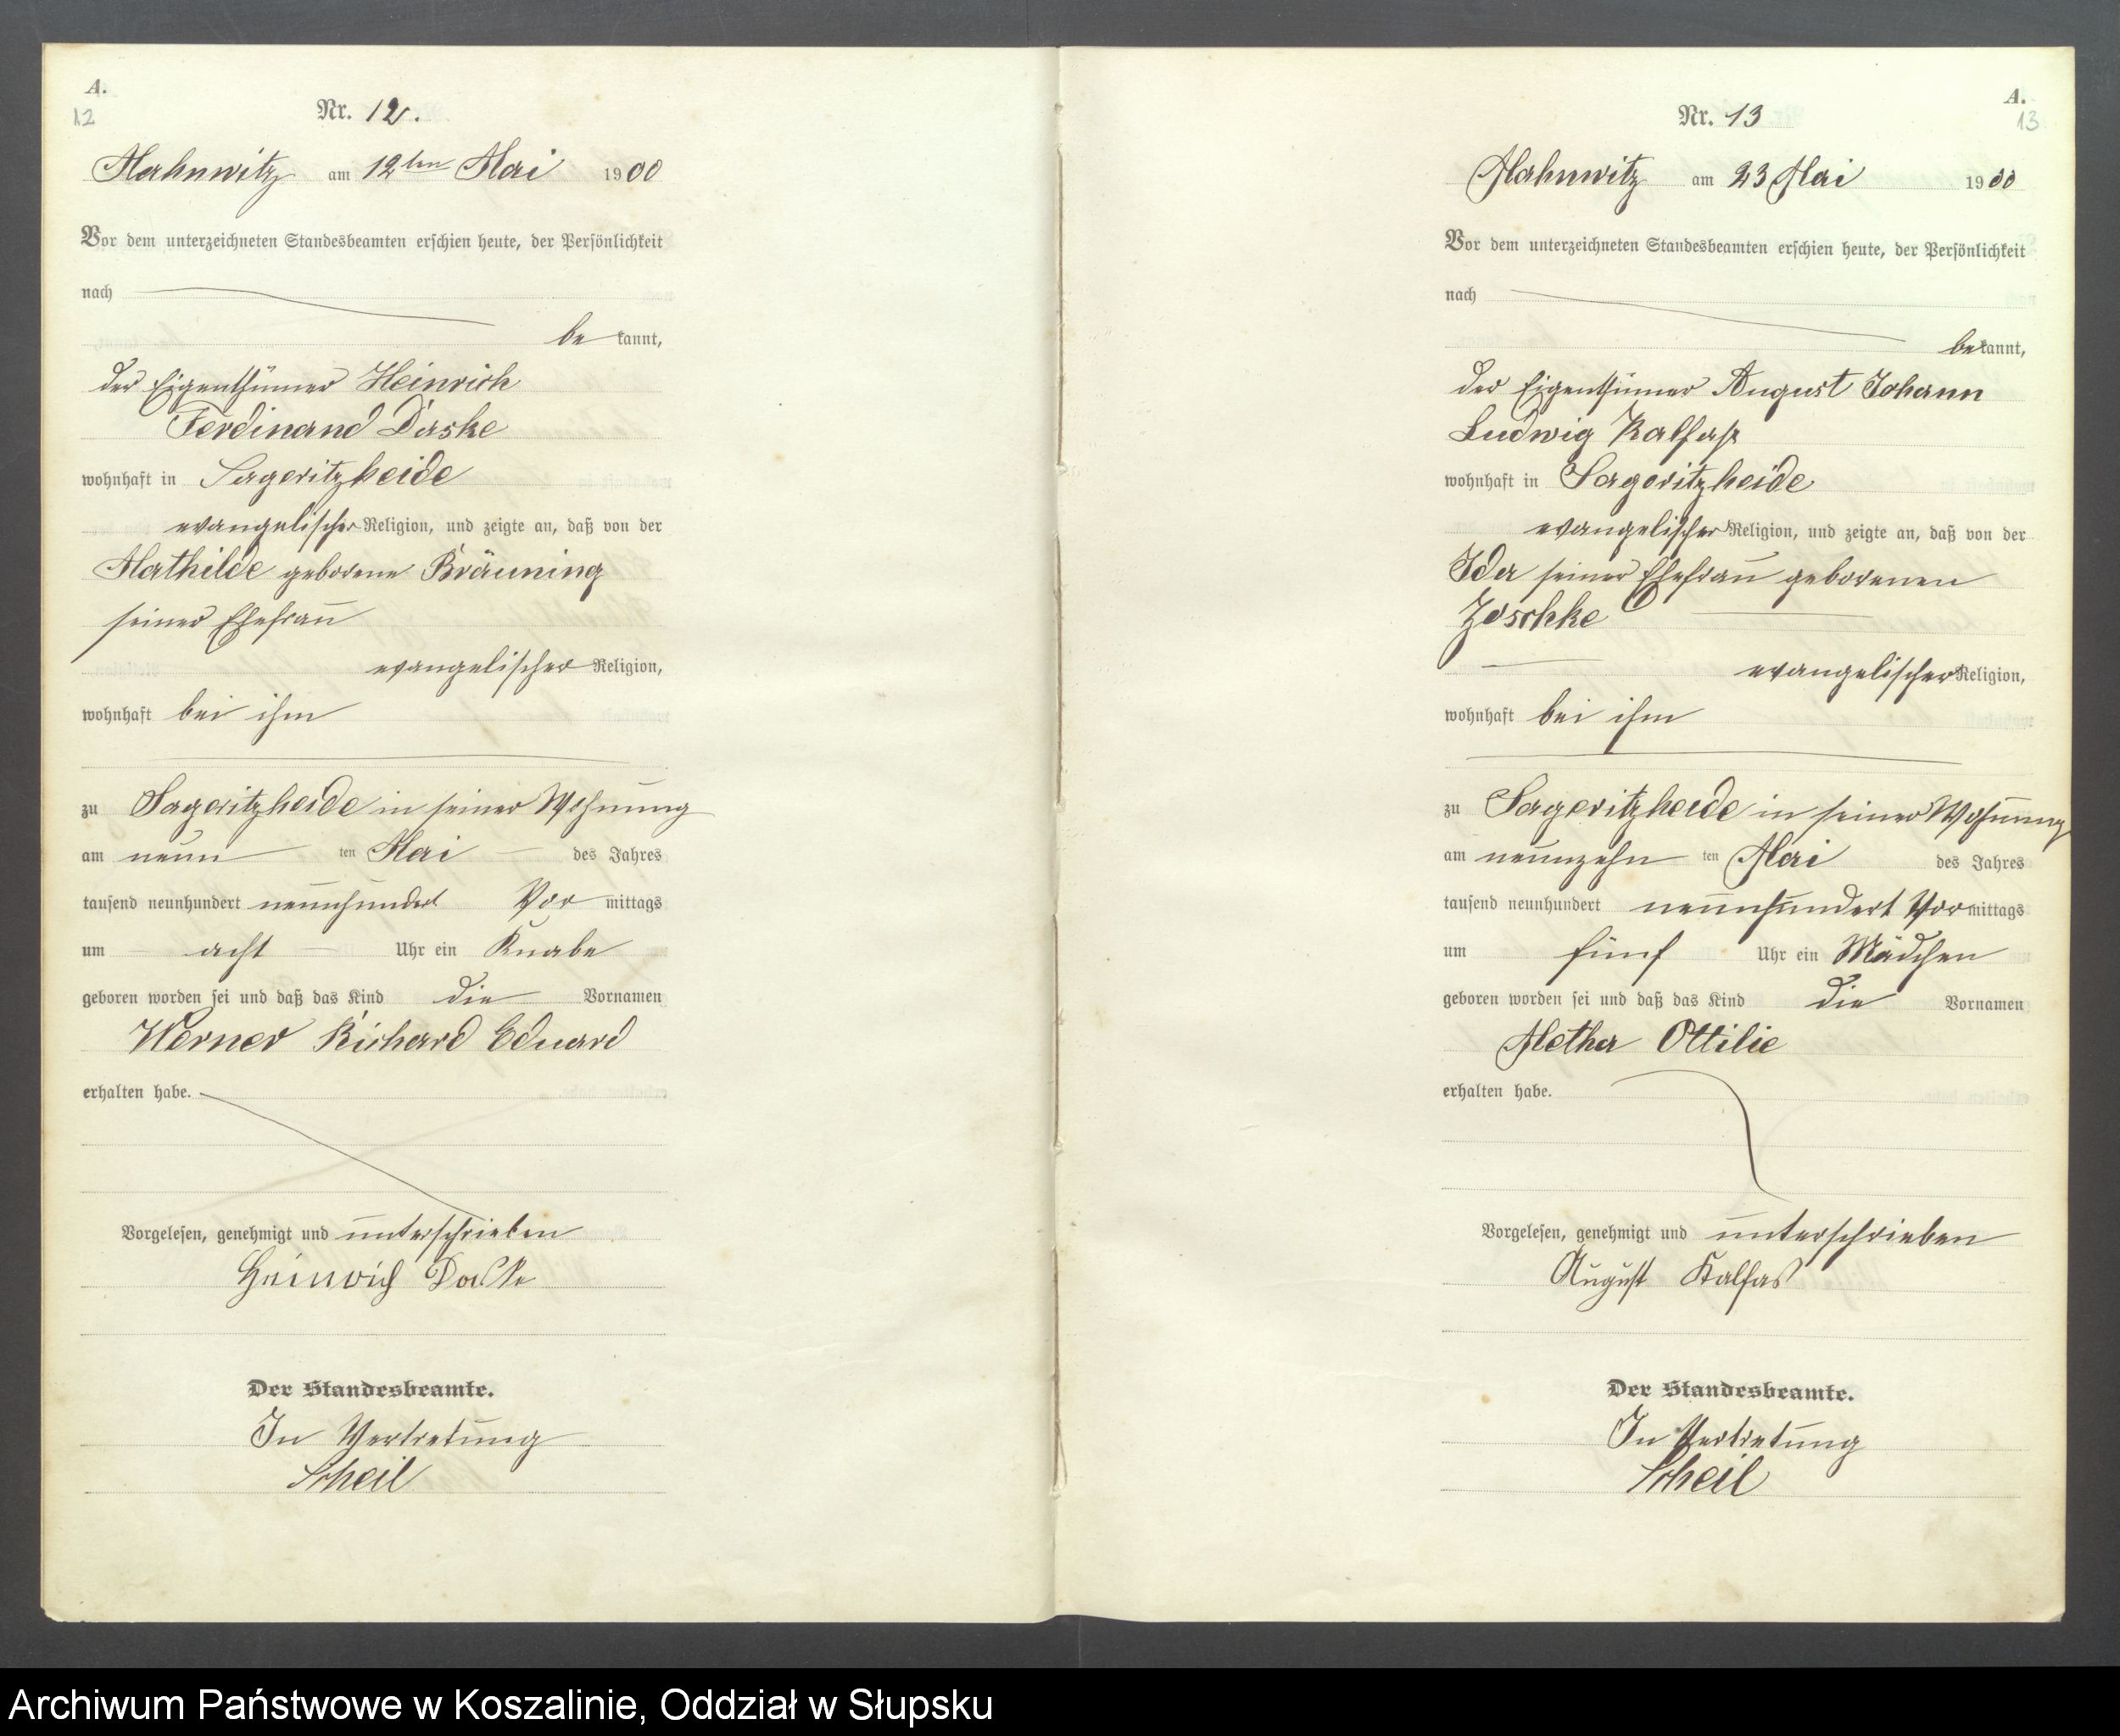 A.
12
Nr. 12.
Mahnwitz am 12ten Mai 1900
Vor dem unterzeichneten Standesbeamten erschien heute, der Persönlichkeit
nach
be kannt,
der Eigenthümer Heinrich
Ferdinand Daske
wohnhaft in Sageritzheide
evangelischer Religion, und zeigte an, daß von der
Mathilde geborene Bräuning
seiner Ehefrau
evangelischer Religion,
wohnhaft bei ihm
zu Sageritzheide in seiner Wohnung
am neun ten Mai des Jahres
tausend neunhundert neunhundert Vor mittags
um acht Uhr ein Knabe
geboren worden sei und daß das Kind die Vornamen
Werner Richard Eduard
erhalten habe.
Vorgelesen, genehmigt und unterschrieben
Heinrich Daske
Der Standesbeamte.
In Vertretung
Scheil
A.
13
Nr. 13
Mahnwitz am 23 Mai 1900
Vor dem unterzeichneten Standesbeamten erschien heute, der Persönlichkeit
nach
bekannt,
der Eigenthümer August Johann
Ludwig Kalfaß
wohnhaft in Sageritzheide
evangelischer Religion, und zeigte an, daß von der
Ida seiner Ehefrau geborenen
Zoschke
evangelischer Religion,
wohnhaft bei ihm
zu Sageritzheide in seiner Wohnung
am neunzehn ten Mai des Jahres
tausend neunhundert neunhundert Vormittags
um fünf Uhr ein Mädchen
geboren worden sei und daß das Kind die Vornamen
Metha Ottilie
erhalten habe.
Vorgelesen, genehmigt und unterschrieben
August Kalfaß
Der Standesbeamte.
In Vertretung
Scheil
Archiwum Państwowe w Koszalinie, Oddział w Słupsku